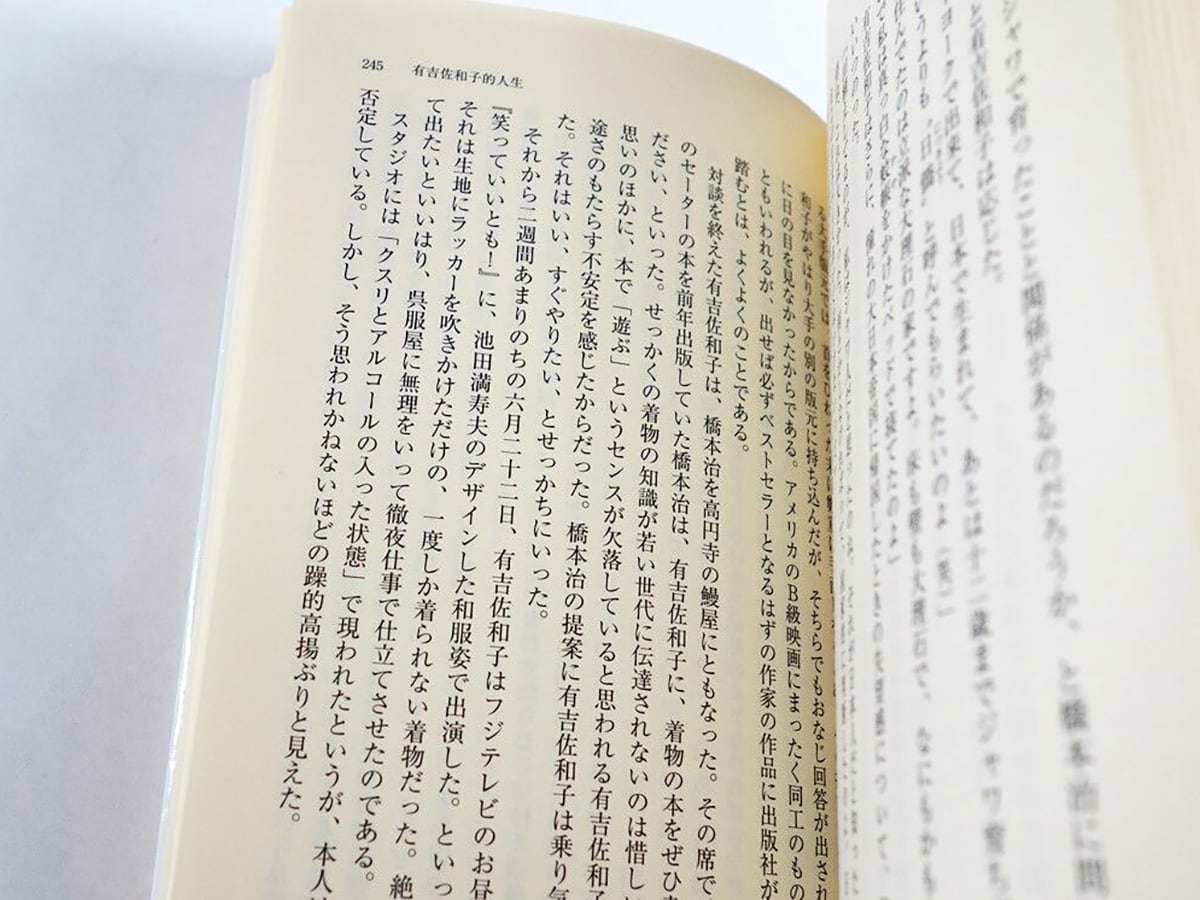 ジャワで育ったことと関係があるのだろうか、と橋本治に問
と有吉佐和子は応じた。
ヨークで出来て、日本で生まれて、あとは十二歳までジャワ育ち
うよりも「日僑」と呼んでもらいたいのよ（笑）」
住んでたのは立派な大理石の家ですよ。床も壁も大理石で、なにもかも
私は真っ白な蚊帳をかけたベッドで寝てたのよ」
有吉佐和子はさらに、憧れの大日本帝国に帰国したときの失望感について、
245 有吉佐和子的人生
和子がやはり大手の別の版元に持ち込んだが、そちらでもおなじ回答が出され
に日の目を見なかったからである。アメリカのB級映画にまったく同工のもの
ともいわれるが、出せば必ずベストセラーとなるはずの作家の作品に出版社が
踏むとは、よくよくのことである。
対談を終えた有吉佐和子は、橋本治を高円寺の鰻屋にともなった。その席で
のセーターの本を前年出版していた橋本治は、有吉佐和子に、着物の本をぜひ
ださい、といった。せっかくの着物の知識が若い世代に伝達されないのは惜し
思いのほかに、本で「遊ぶ」というセンスが欠落していると思われる有吉佐和子
途さのもたらす不安定を感じたからだった。橋本治の提案に有吉佐和子は乗り気
た。それはいい、すぐやりたい、とせっかちにいった。
それから二週間あまりのちの六月二十二日、有吉佐和子はフジテレビのお昼
『笑っていいとも!』に、池田満寿夫のデザインした和服姿で出演した。といっ
それは生地にラッカーを吹きかけただけの、一度しか着られない着物だった。絶
て出たいといいはり、呉服屋に無理をいって徹夜仕事で仕立てさせたのである。
スタジオには「クスリとアルコールの入った状態」で現われたというが、本人は
否定している。しかし、そう思われかねないほどの躁的高揚ぶりと見えた。